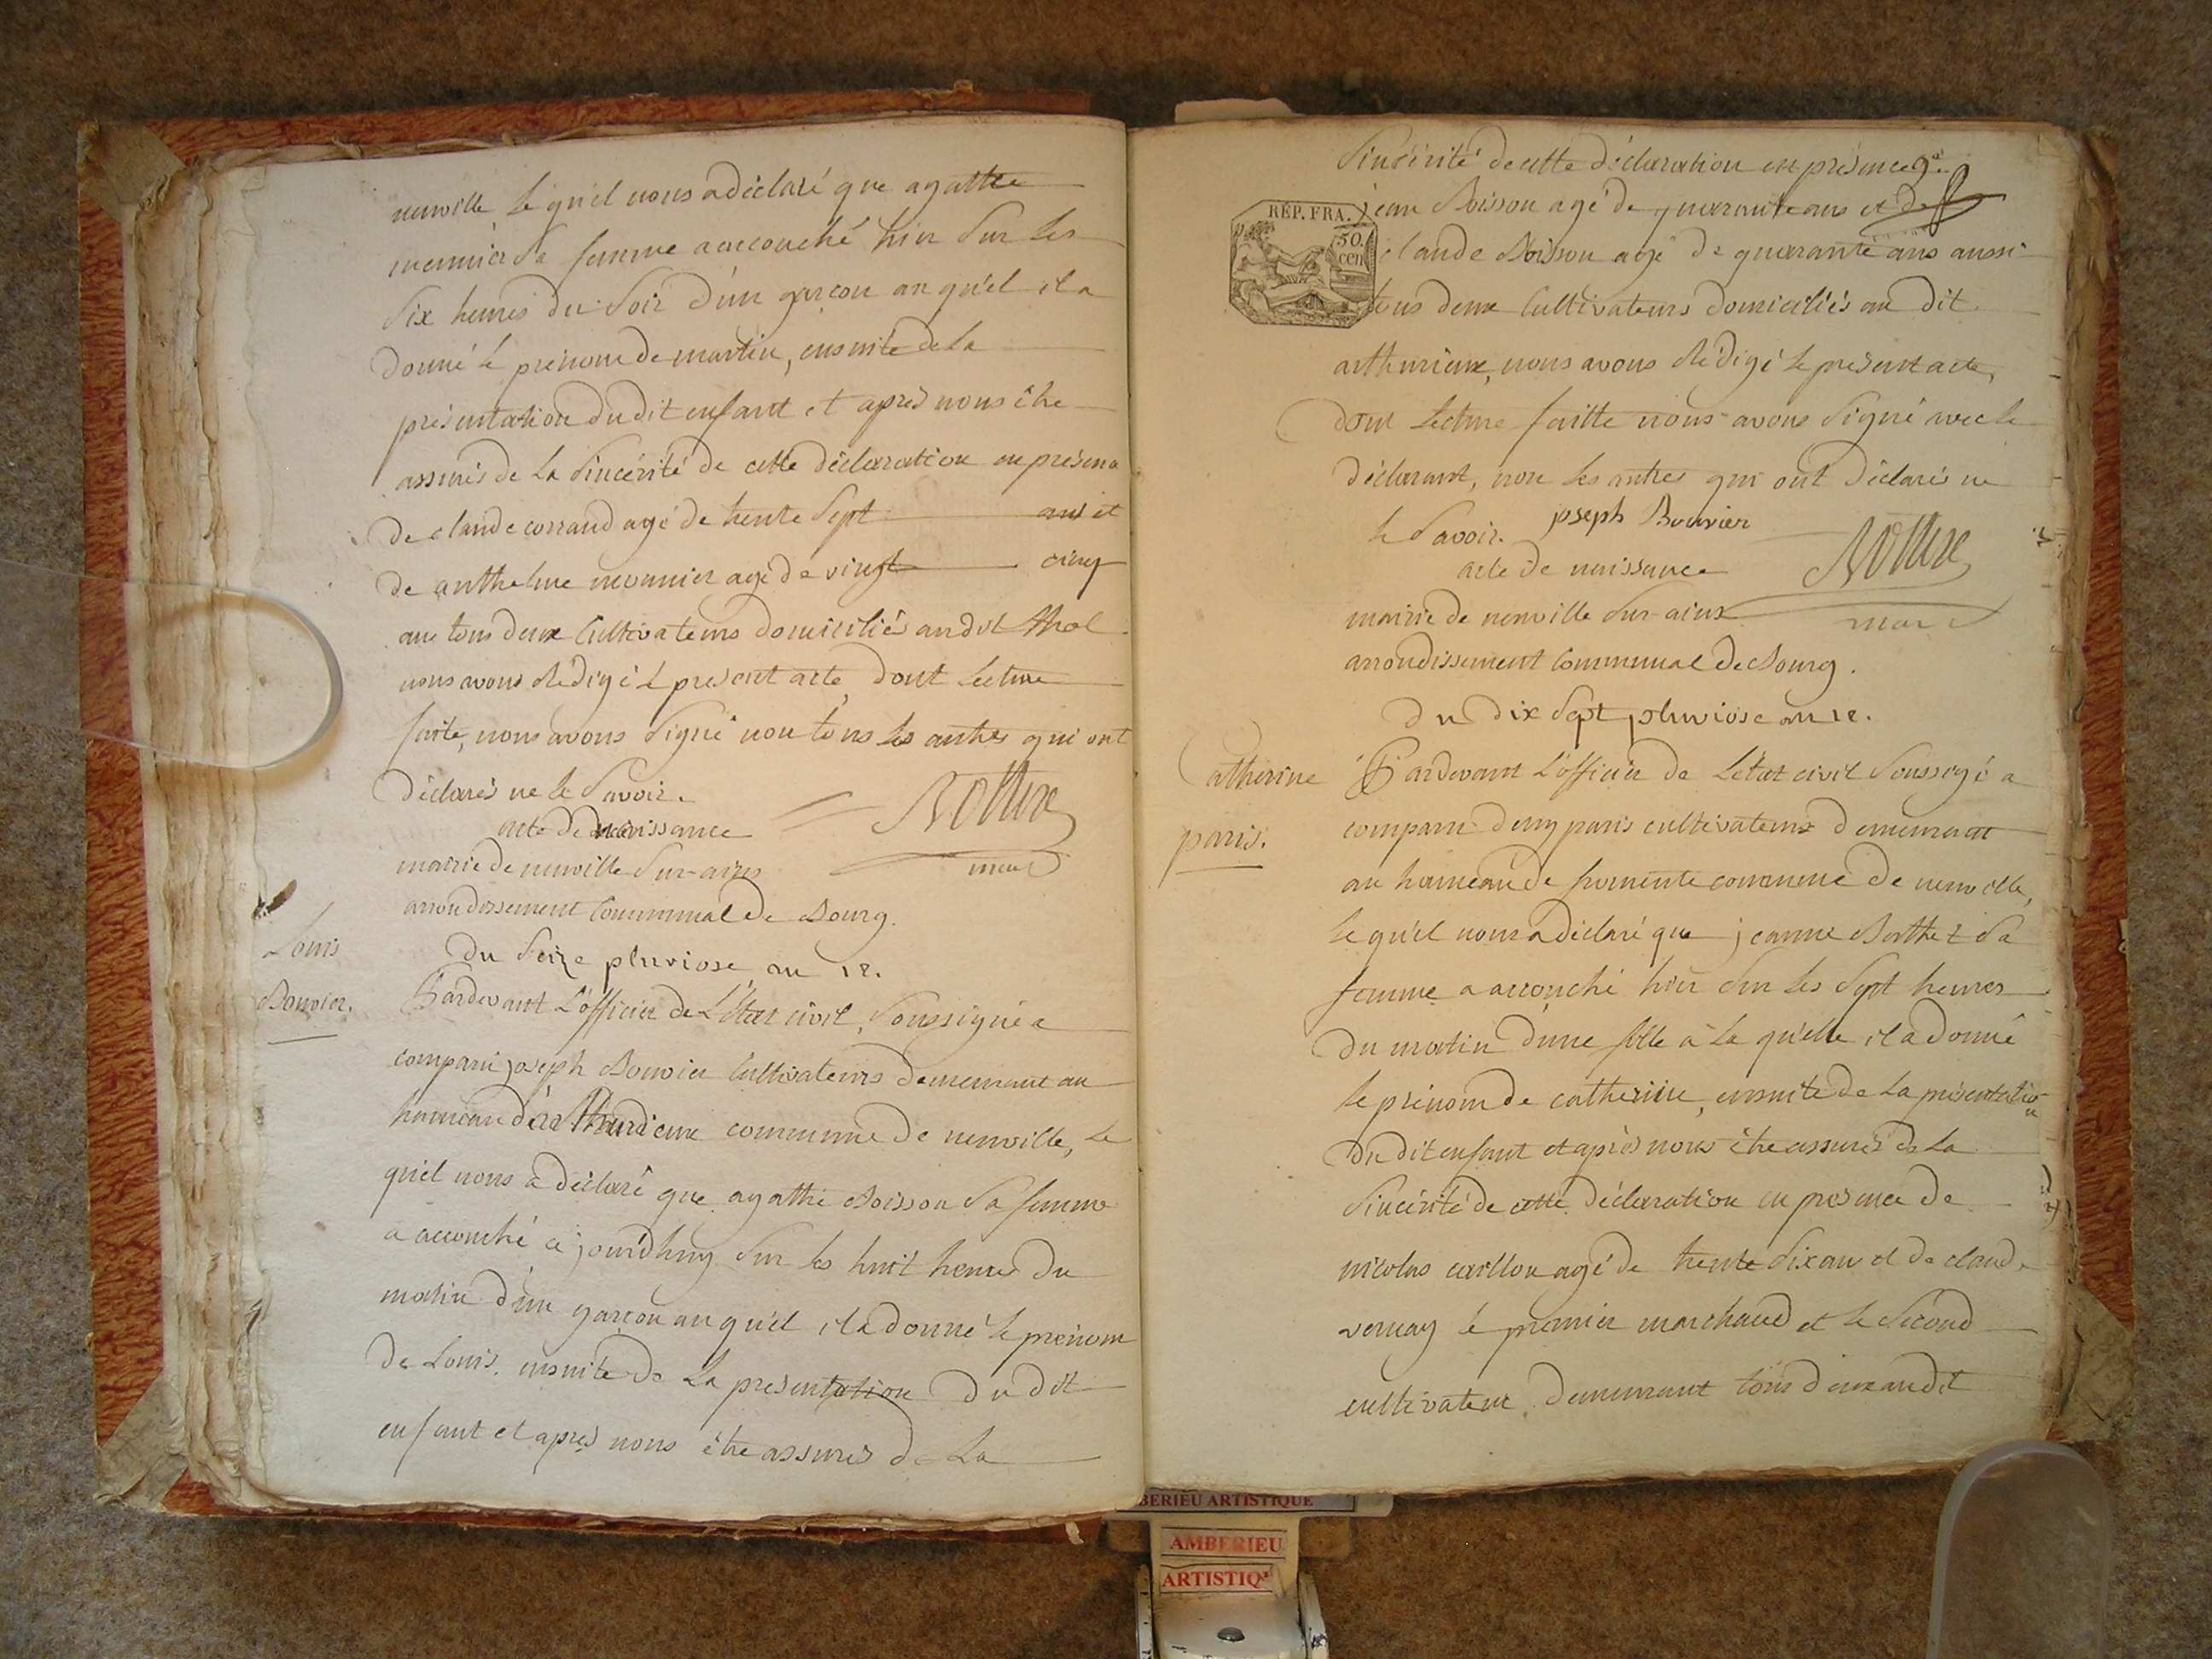 neuville le qu'el nous a déclaré que agathe
meunier sa femme a accouché hier sur les
six heures du soir d'un garçon au qu'el il a
donné le prénom de martin, ensuite de la
présentation du dit enfant et après nous être
assurés de la sincérité de cette déclaration en présence
de claude corrand agé de trente sept ans et
de anthelme monnier agé de vingt cinq
ans tous deux cultivateurs domiciliés au dit thol
nous avons rédigé le present acte, dont lecture
faite, nous avons signé non tous les autres qui ont
déclarés ne le savoir.
acte de naissance
maire
mairie de neuville sur-ains
arrondissement communal de Bourg.
Louis
Bouvier.
du seize pluviose an 12.
Pardevant L'officier de L'état civil, soussigné a
comparu joseph Bouvier cultivateurs demeurant au
hameau d'arthurieux commune de neuville, le
qu'el nous a déclaré que agathe Boisson sa femme
a accouché ce jourdhuy sur les huit heures du
matin d'un garçon au qu'el il a donné le prénom
de Louis. ensuite de la présentation du dit
enfant et après nous être assurés de la
sincérité de cette déclaration en présence de
RÉP. FRA.
50.
cen
jean Boisson agé de quarante ans et de
claude Boisson agé de quarante ans aussi
tous deux cultivateurs domiciliés au dit
arthurieux, nous avons rédigé le présent acte,
dont lecture faitte nous avons signé avec le
déclarant, non les autres qui ont déclarés ne
le savoir. joseph Bouvier
acte de naissance
mairie de neuville sur-ains
maire
arrondissement communal de Bourg.
du dix sept pluviose an 12.
Catherine
paris.
Pardevant L'officier de L'état civil soussigé a
comparu deny paris cultivateurs demeurant
au hameau de fromente commune de neuville,
le qu'el nous a déclaré que jeanne Berthet sa
femme a accouché hier sur les sept heures
du matin d'une fille à la qu'elle il a donné
le prénom de catherine, ensuite de la présentation
du dit enfant et après nous être assurés de la
sincérité de cette déclaration en présence de
nicolas caillon agé de trente six an et de claude
vernay le premier marchand et le second
cultivateur, demeurant tous deux au dit
BERIEU ARTISTIQUE
AMBERIEU
ARTISTIQ